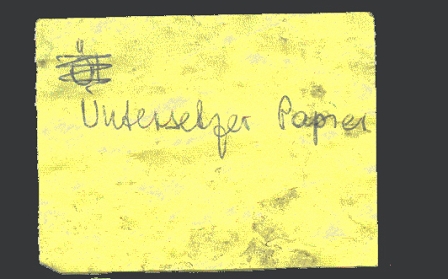 Untersetzer Papier